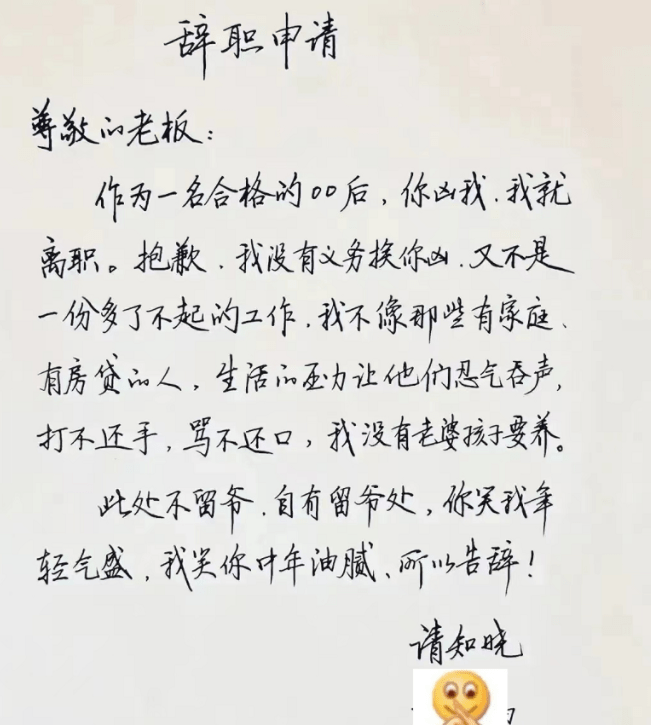 辞职申请
尊敬的老板：
作为一名合格的00后，你凶我，我就
离职。抱歉，我没有义务挨你凶，又不是
一份多了不起的工作，我不像那些有家庭、
有房贷的人，生活的压力让他们忍气吞声，
打不还手，骂不还口，我没有老婆孩子要养。
此处不留爷，自有留爷处，你笑我年
轻气盛，我笑你中年油腻、所以告辞！
请知晓